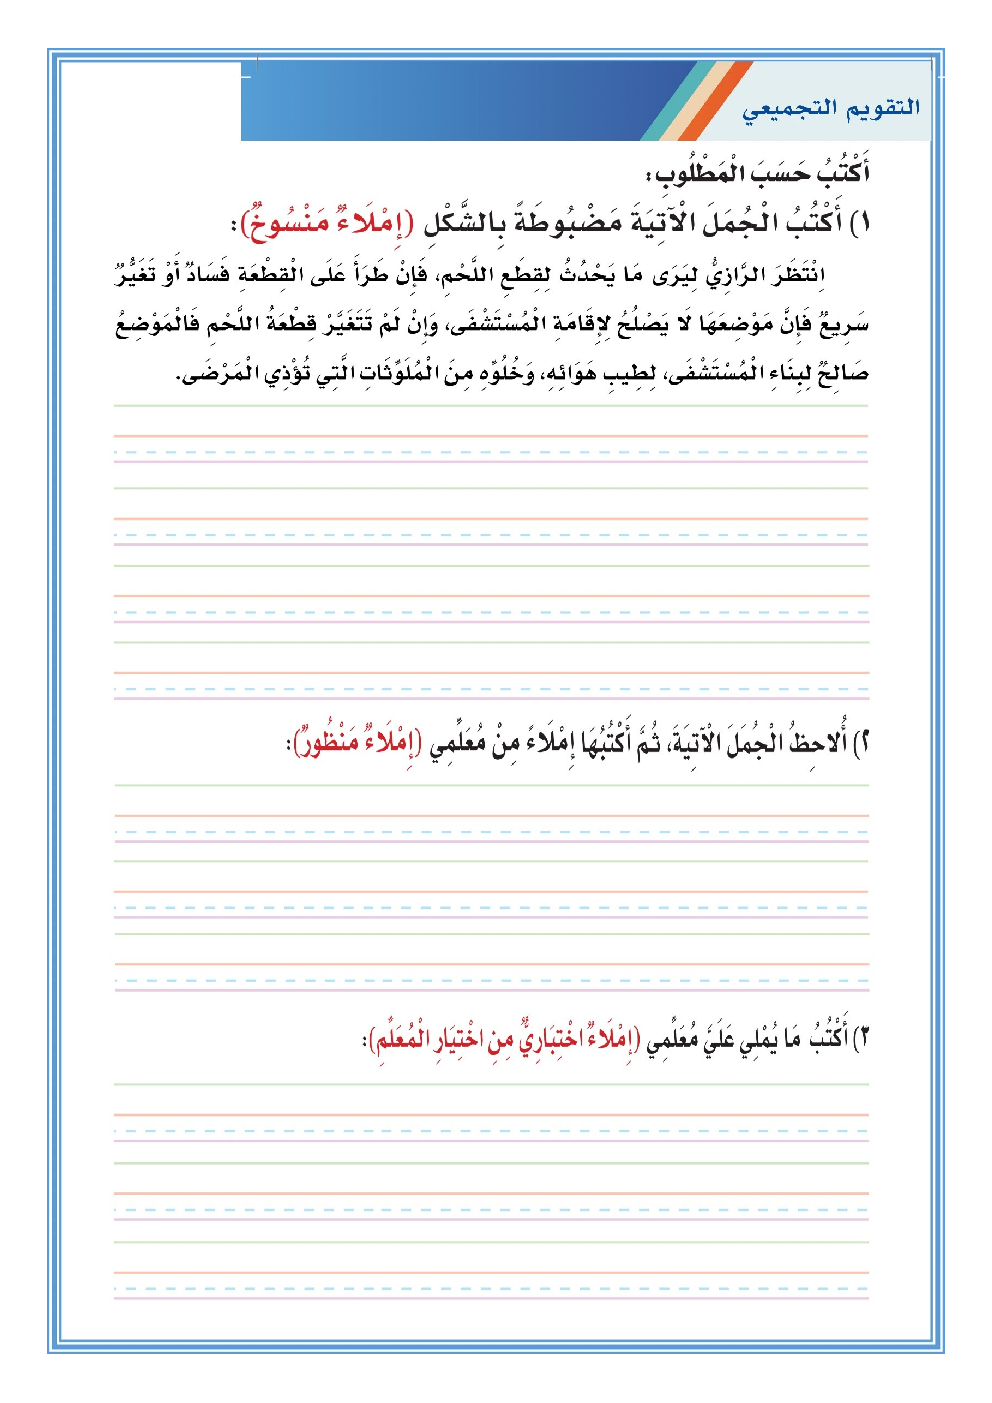 التقويم التجميعي
أَكْتُبُ حَسَبَ الْمَطْلُوبِ:
١) أَكْتُبُ الْجُمَلَ الْآتِيَةَ مَضْبُوطَةً بِالشَّكْلِ (إِمْلَاءٌ مَنْسُوخٌ):
اِنْتَظَرَ الرَّازِيُّ لِيَرَى مَا يَحْدُثُ لِقِطَعِ اللَّحْمِ، فَإِنْ طَرَأَ عَلَى الْقِطْعَةِ فَسَادٌ أَوْ تَغَيُّرٌ
سَرِيعٌ فَإِنَّ مَوْضِعَهَا لَا يَصْلُحُ لِإِقَامَةِ الْمُسْتَشْفَى، وَإِنْ لَمْ تَتَغَيَّرْ قِطْعَةُ اللَّحْمِ فَالْمَوْضِعُ
صَالِحٌ لِبِنَاءِ الْمُسْتَشْفَى، لِطِيبِ هَوَائِهِ، وَخُلُوِّهِ مِنَ الْمُلَوِّثَاتِ الَّتِي تُؤْذِي الْمَرْضَى.
٢) أُلاحِظُ الْجُمَلَ الْآتِيَةَ، ثُمَّ أَكْتُبُهَا إِمْلَاءً مِنْ مُعَلِّمِي (إِمْلَاءٌ مَنْظُورٌ):
٣) أَكْتُبُ مَا يُمْلِي عَلَيَّ مُعَلِّمِي (إِمْلَاءٌ اخْتِبَارِيٌّ مِنِ اخْتِيَارِ الْمُعَلِّمِ):